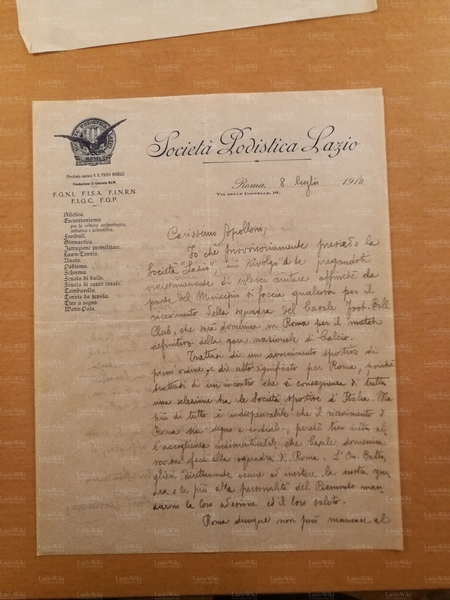 Società Podistica Lazio
Roma, 8 luglio 1914
VIA DELLE COPPELLE, 16.
F.G.N.I. F.I.S.A. F.I.N.R.N.
F.I.G.C. F.G.P.
Atletica.
Escursionismo
Football.
Ginnastica.
Istruzione premilitare.
Lawn-Tennis.
Nuoto.
Podismo.
Scherma.
Scuola di ballo.
Scuola di canto corale.
Tamburello.
Tennis da tavola.
Tiro a segno.
Water-Polo.
Carissimo Apolloni,
Io che provvisoriamente presiedo la
Società "Lazio", mi rivolgo a te pregandoti
vivissimamente di volerci aiutare affinché da
parte del Municipio si faccia qualcosa per il
ricevimento della squadra del Casale Foot-Ball
Club, che sarà domenica in Roma per il match
definitivo della gara nazionale di Calcio.
Trattasi di un avvenimento sportivo di
prim'ordine, e di alto significato per Roma, poiché
trattasi di un incontro che è conseguenza di tutta
una selezione tra le Società sportive d'Italia. Ma
più di tutto è indispensabile che il ricevimento di
Roma sia degno e cordiale, perché tien dietro al
l'accoglienza indimenticabile che Casale domenica
scorsa fece alla squadra di Roma. L'On. Batta
glieri direttamente venne ad assistere la nostra squa
dra e le più alte personalità del Piemonte man
darono la loro adesione ed il loro saluto.
Roma dunque non può mancare al